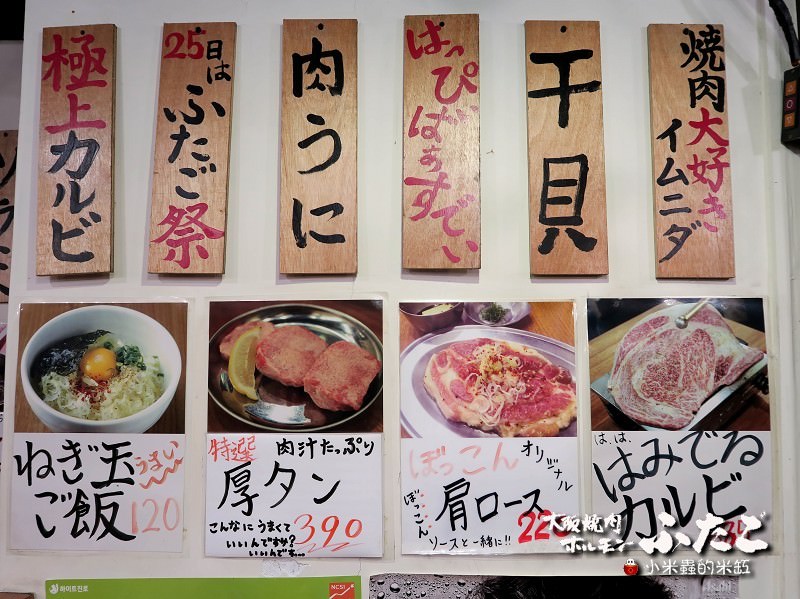 極上カルビ
25日は
ふたご祭
肉うに
はっぴぃ
ばぁすでぃ
干貝
焼肉大好き
イムニダ
ねぎ玉
うまい
ご飯
120
特選
肉汁たっぷり
厚タン
こんなにうまくて
いいんですか?
いいんです…
390
ぼっこん
オリジナル
ぼっこん
肩ロース
220
ソースと一緒に!!
は、は、
はみでる
カルビ
大阪焼肉
ホルモン
ふたご
小米蟲的米缸
하이트진로
NCSI